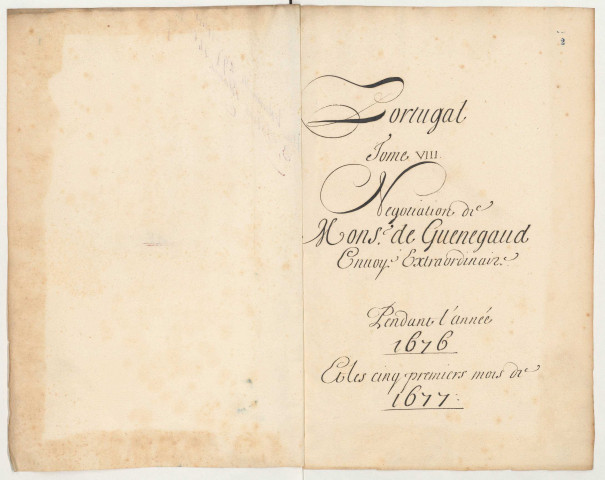 Portugal
Tome VIII.
Negotiation de
Mons.r de Guenegaud
Envoyé Extraordinaire
Pendant l'année
1676
Et les cinq premiers mois de
1677.